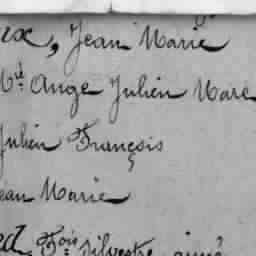 eux, Jean Marie
Mie Ange Julien Marc
Julien François
Jean Marie
Fois Silvestre aimé